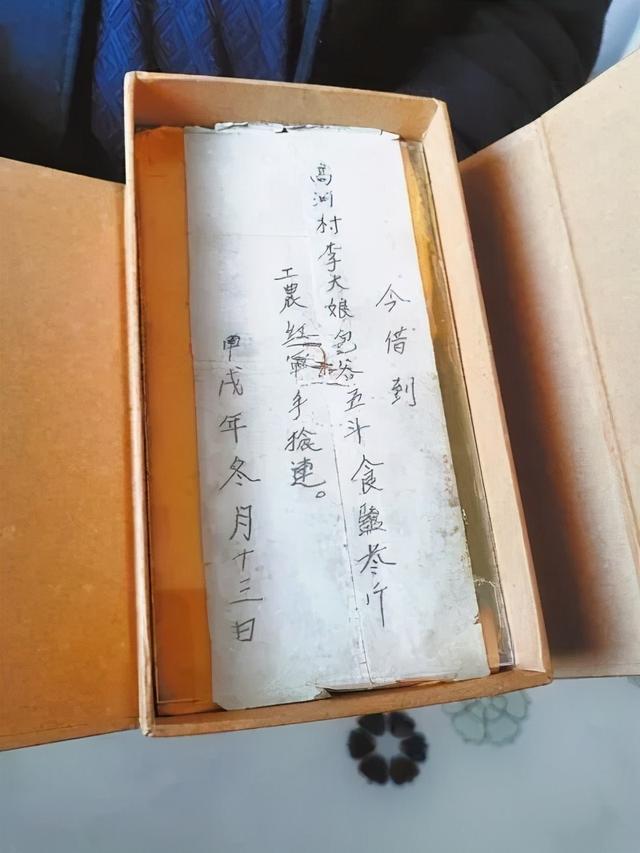 今借到
高河村李大娘包谷五斗食鹽叁斤
工農紅軍手搶連。
甲戌年冬月十三日